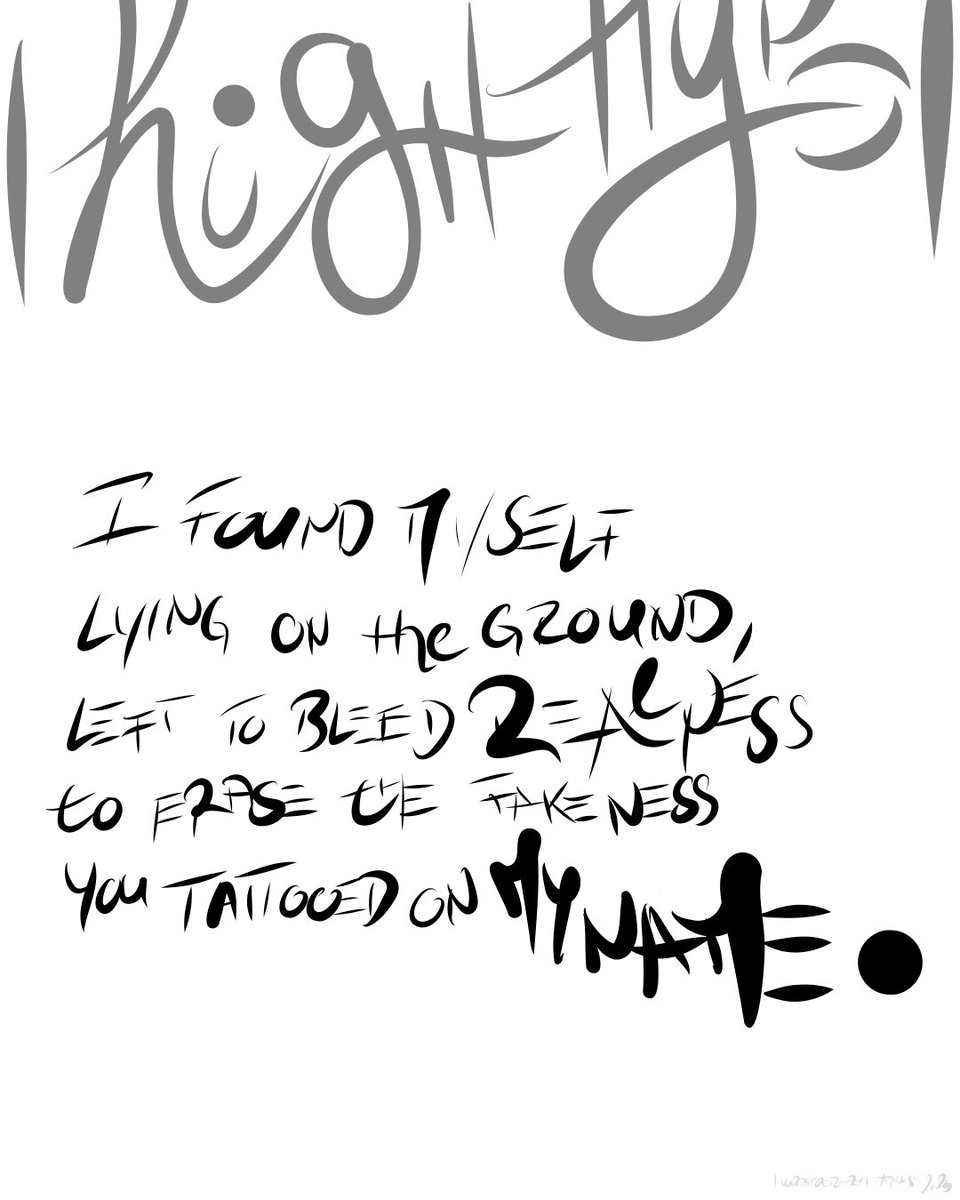 I FOUND MYSELF
LYING ON the GROUND,
LEFT TO BLEED REALNESS
to ERASE tHE FAKENESS
You TATTOOED ON MY NAME.